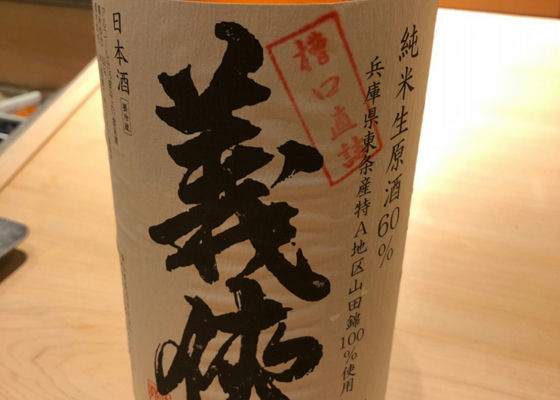 純米生原酒60%
兵庫県東条産特A地区山田錦100%使用
槽口直詰
義侠
日本酒
要冷蔵